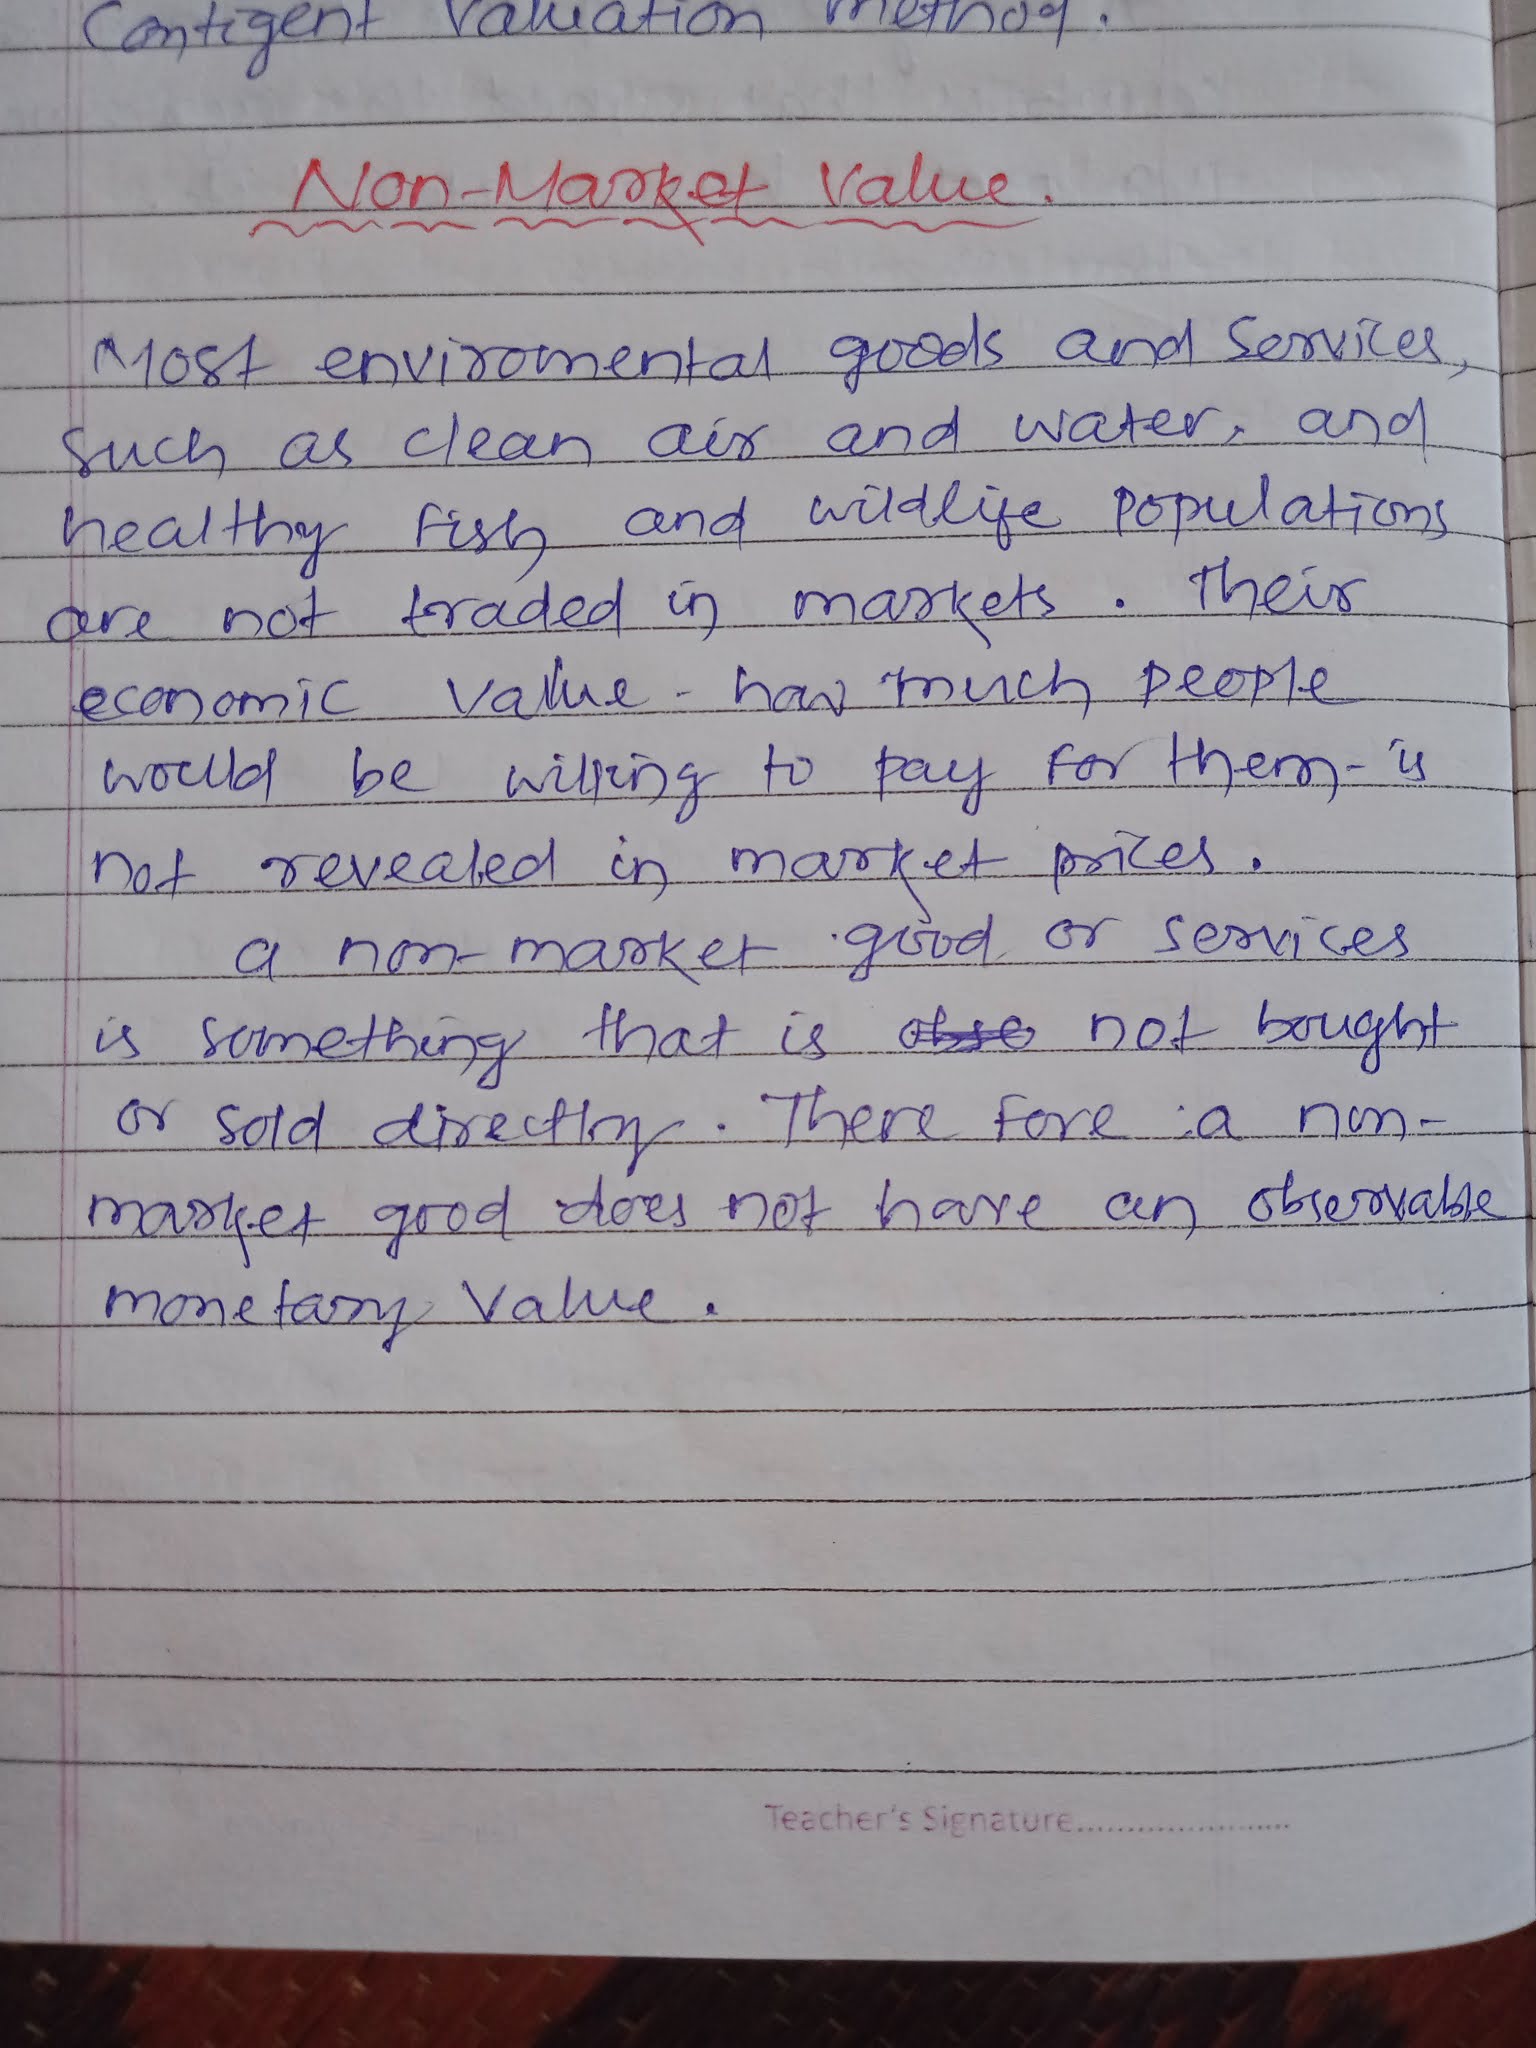 Contigent Valuation method.
Non-Market Value.
Most enviromental goods and Services,
such as clean air and water, and
healthy fish and wildlife populations
are not traded in markets. Their
economic value - how much people
would be willing to pay for them - is
not revealed in market prices.
a non-market good or services
is something that is not bought
or sold directly. There fore :a non-
market good does not have an observable
monetary value.
Teacher's Signature.......................